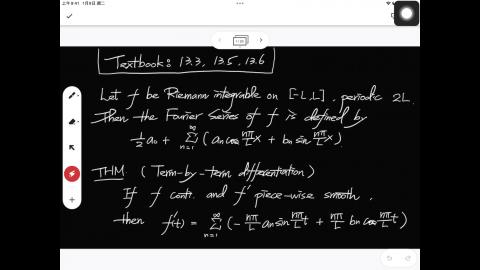 上午9:41 1月9日 週二
Textbook: 13.3, 13.5, 13.6
Let f be Riemann integrable on [-L,L], periodic 2L.
Then the Fourier Series of f is defined by
½a₀ + Σ_{n=1}^{∞} (aₙ cos nπ/L x + bₙ sin nπ/L x)
THM. (Term-by-term differentiation)
If f conti. and f' piece-wise smooth,
then f'(t) = Σ_{n=1}^{∞} (- nπ/L aₙ sin nπ/L t + nπ/L bₙ cos nπ/L t)